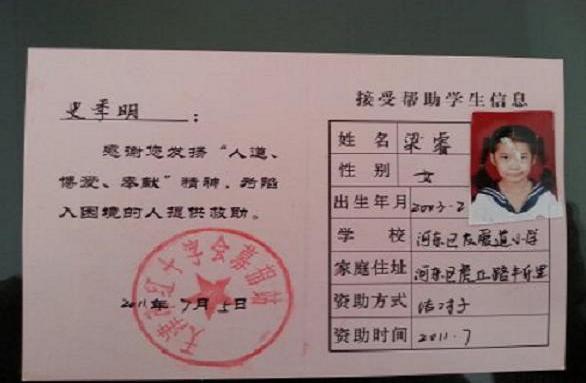 史季明：
感谢您发扬“人道、
博爱、奉献”精神，为陷
入困境的人提供救助。
2011年7月5日
接受帮助学生信息
姓名 梁睿
性别 女
出生年月 2003-2
学校 河东区友爱道小学
家庭住址 河东区虎丘路
资助方式 结对子
资助时间 2011.7